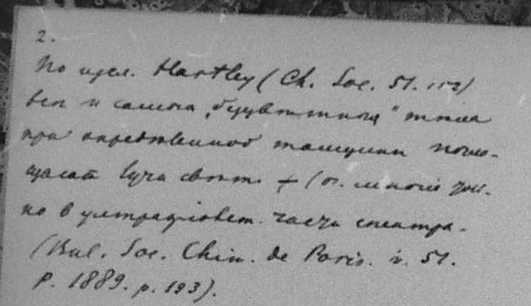 2.
По изсл. Hartley (Ch. Soc. 51. 152)
все и самыя „безцветныя“ тела
при определенной толщине погло-
щают лучи света +
но в ултрафиолет. части спектра.
(Bul. Soc. Chim. de Paris. v. 51.
P. 1889. p. 193).